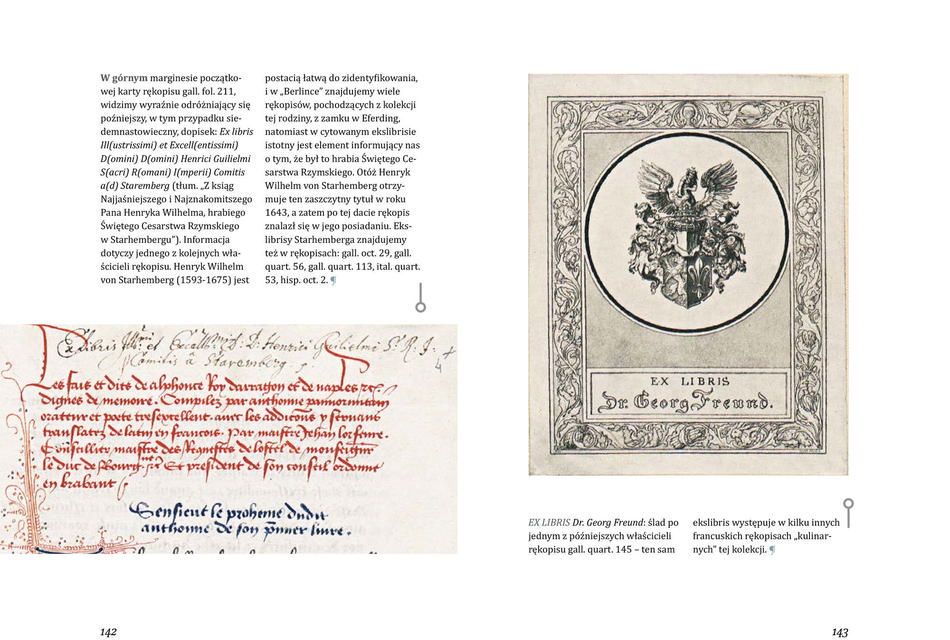 W górnym marginesie początko-
wej karty rękopisu gall. fol. 211,
widzimy wyraźnie odróżniający się
poźniejszy, w tym przypadku sie-
demnastowieczny, dopisek: Ex libris
Ill(ustrissimi) et Excell(entissimi)
D(omini) D(omini) Henrici Guilielmi
S(acri) R(omani) I(mperii) Comitis
a(d) Staremberg (tłum. „Z ksiąg
Najjaśniejszego i Najznakomitszego
Pana Henryka Wilhelma, hrabiego
Świętego Cesarstwa Rzymskiego
w Starhembergu”). Informacja
dotyczy jednego z kolejnych wła-
ścicieli rękopisu. Henryk Wilhelm
von Starhemberg (1593-1675) jest
postacią łatwą do zidentyfikowania,
i w „Berlince” znajdujemy wiele
rękopisów, pochodzących z kolekcji
tej rodziny, z zamku w Eferding,
natomiast w cytowanym ekslibrisie
istotny jest element informujący nas
o tym, że był to hrabia Świętego Ce-
sarstwa Rzymskiego. Otóż Henryk
Wilhelm von Starhemberg otrzy-
muje ten zaszczytny tytuł w roku
1643, a zatem po tej dacie rękopis
znalazł się w jego posiadaniu. Eks-
librisy Starhemberga znajdujemy
też w rękopisach: gall. oct. 29, gall.
quart. 56, gall. quart. 113, ital. quart.
53, hisp. oct. 2. ¶
Ex libris et D. D. Henrici Guilielmi S. R. I.
Comitis à Staremberg.
Les fais et dits de alphonce Roy darragon et de naples
dignes de memoire. Compilez par anthoine pannormitain
orateur et poete tresexcellent. avec les addicions y servans
translatez de latin en francois. Par maistre Jehan lorfevre.
Conseillier maistre des Requestes de lostel de monseigneur
le duc de Bourg.ne Et president de son conseil ordonne
en brabant
Sensieut le proheme dudit
anthoine de son premier livre.
142
EX LIBRIS
Dr. Georg Freund.
EX LIBRIS Dr. Georg Freund: ślad po
jednym z późniejszych właścicieli
rękopisu gall. quart. 145 – ten sam
ekslibris występuje w kilku innych
francuskich rękopisach „kulinar-
nych” tej kolekcji. ¶
143